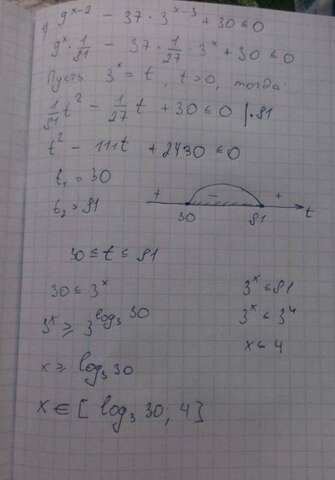 1) 9^(x-2) - 37 · 3^(x-3) + 30 ≤ 0
9^x · 1/81 - 37 · 1/27 · 3^x + 30 ≤ 0
Пусть 3^x = t, t > 0, тогда:
1/81 t^2 - 1/27 t + 30 ≤ 0 | · 81
t^2 - 111t + 2430 ≤ 0
t₁ = 30
t₂ = 81
+ - +
30 81 t
30 ≤ t ≤ 81
30 ≤ 3^x 3^x ≤ 81
3^x ≥ 3^(log₃ 30) 3^x ≤ 3^4
x ≥ log₃ 30 x ≤ 4
x ∈ [log₃ 30, 4]